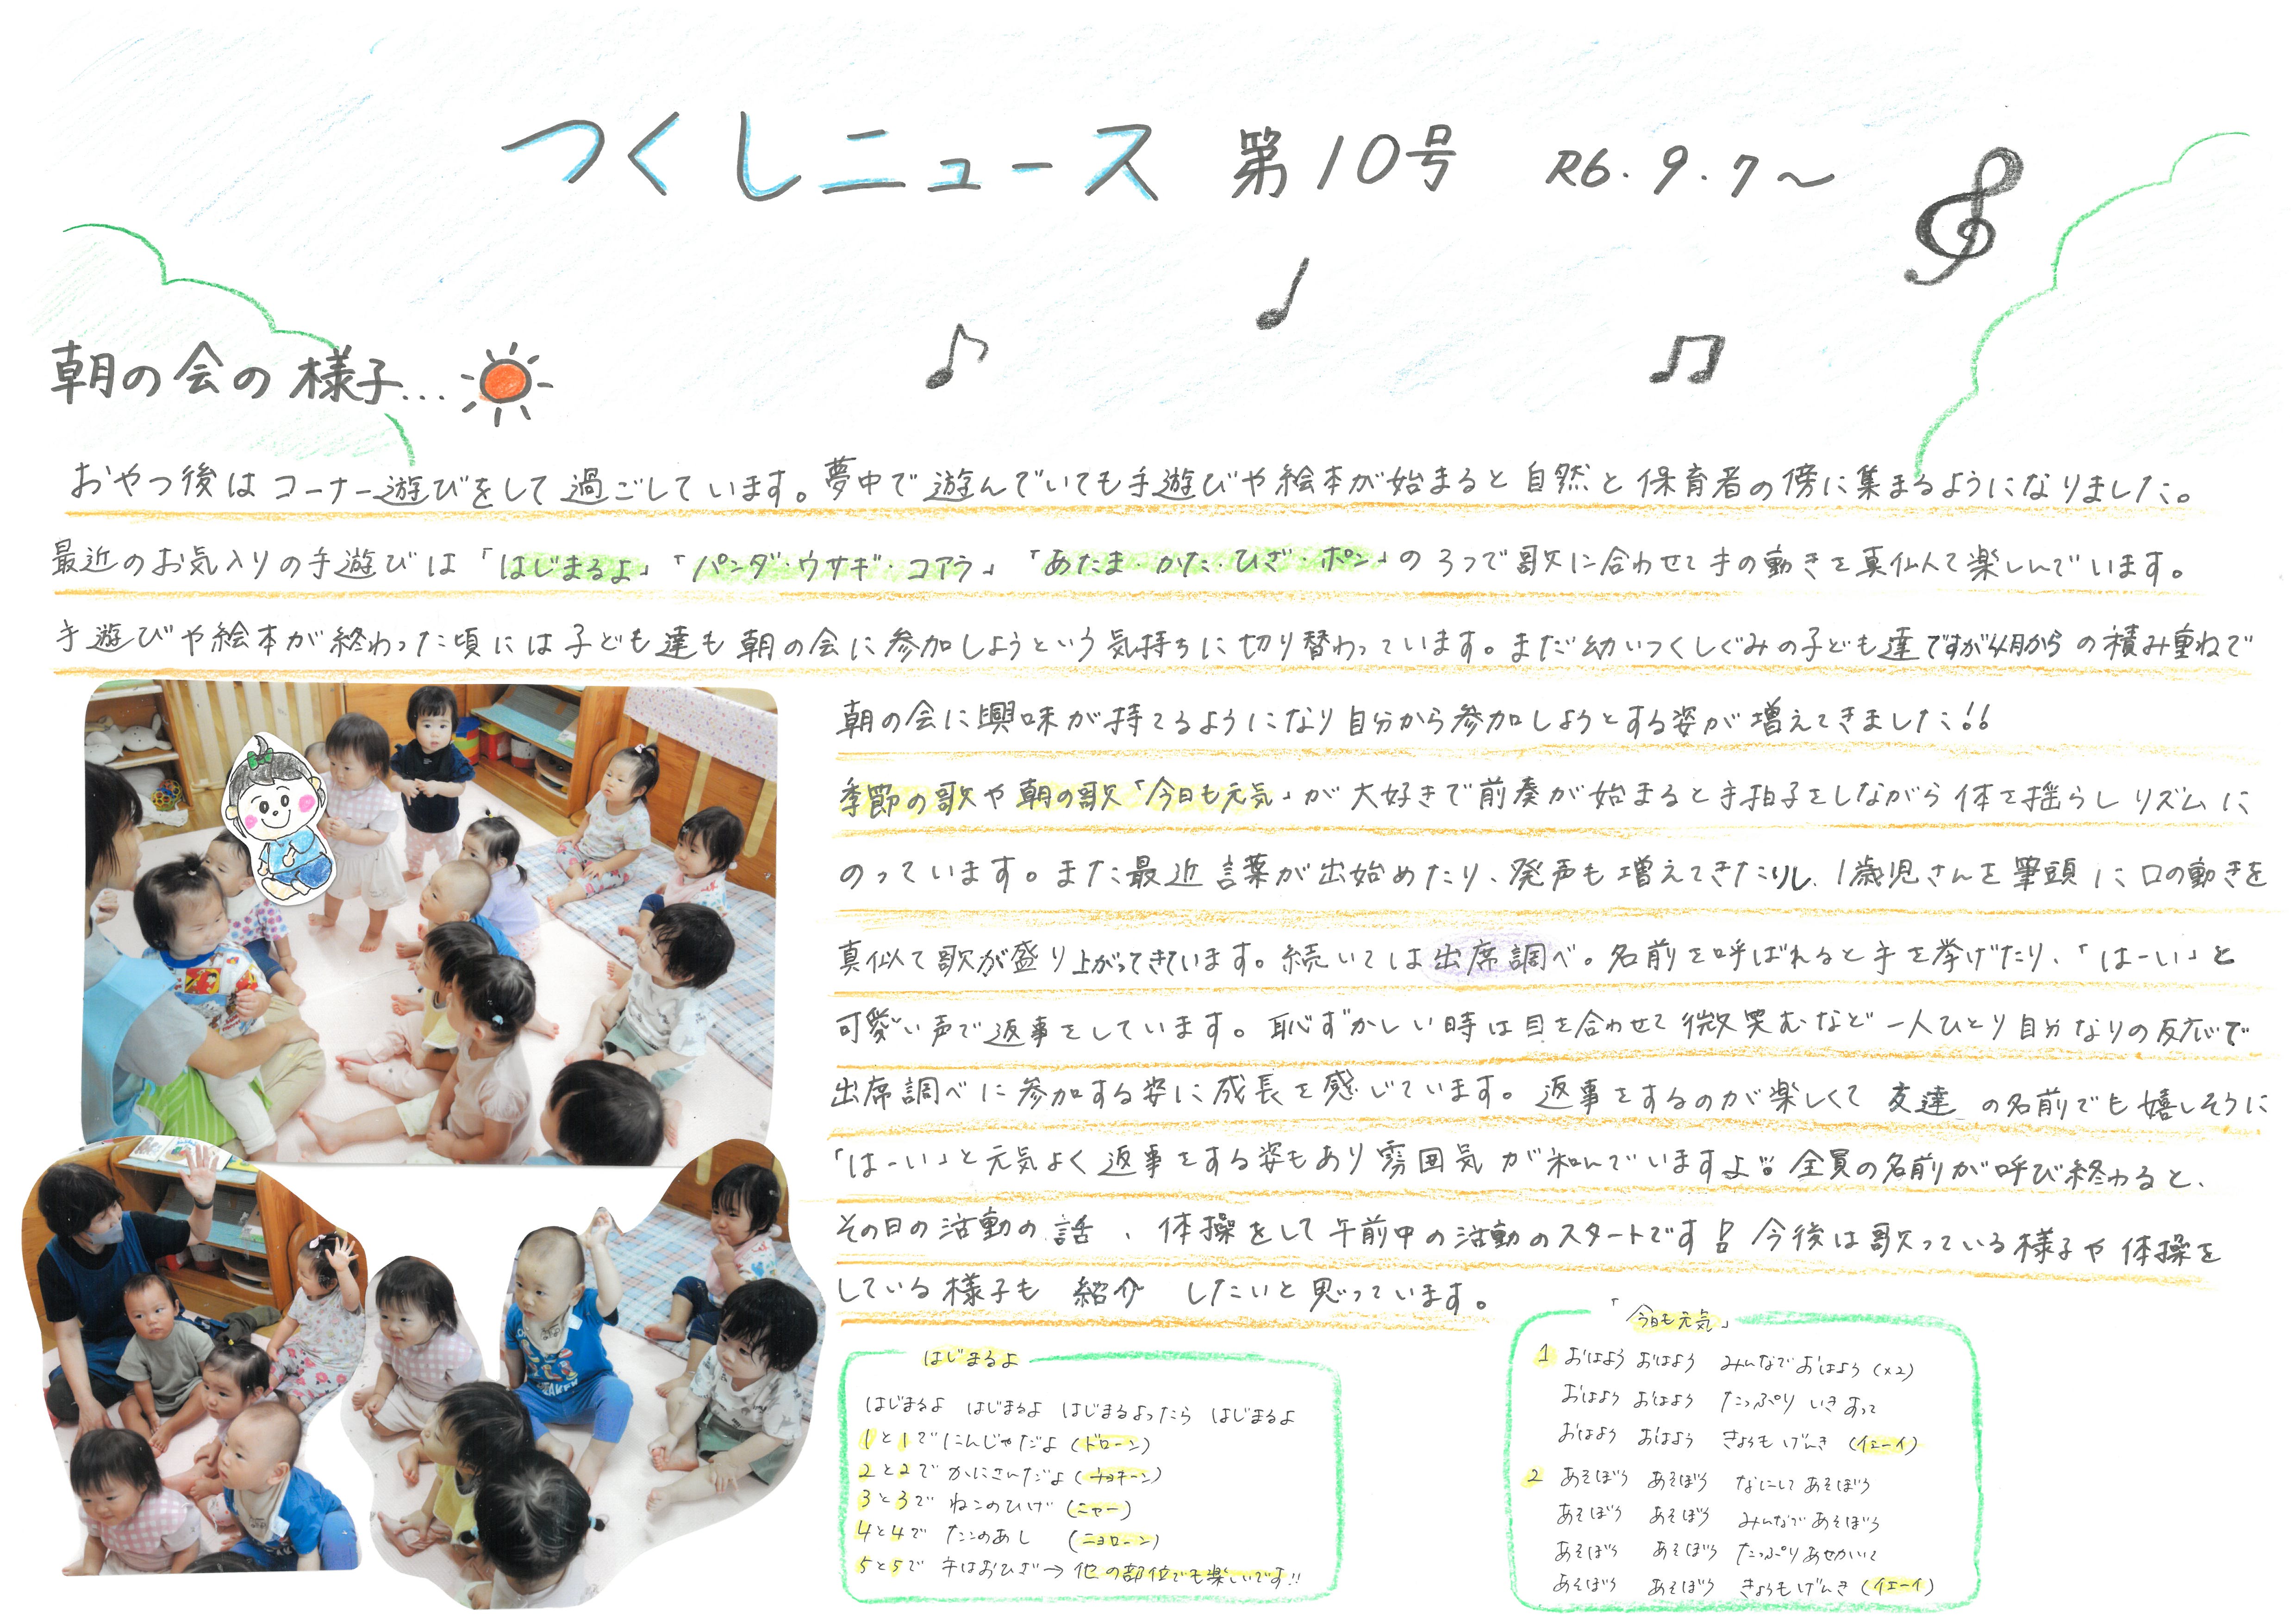 つくしニュース 第10号 R6.9.7～
朝の会の様子…
おやつ後はコーナー遊びをして過ごしています。夢中で遊んでいても手遊びや絵本が始まると自然と保育者の傍に集まるようになりました。
最近のお気入りの手遊びは「はじまるよ」「パンダ・ウサギ・コアラ」「あたま・かた・ひざ・ポン」の3つで歌に合わせて手の動きを真似て楽しんでいます。
手遊びや絵本が終わった頃には子ども達も朝の会に参加しようという気持ちに切り替わっています。まだ幼いつくしぐみの子ども達ですが4月からの積み重ねで
朝の会に興味が持てるようになり自分から参加しようとする姿が増えてきました!!
季節の歌や朝の歌「今日も元気」が大好きで前奏が始まると手拍子をしながら体を揺らしリズムに
のっています。また最近言葉が出始めたり、発声も増えてきたりし、1歳児さんを筆頭に口の動きを
真似て歌が盛り上がってきています。続いては出席調べ。名前を呼ばれると手を挙げたり、「はーい」と
可愛い声で返事をしています。恥ずかしい時は目を合わせて微笑むなど一人ひとり自分なりの反応で
出席調べに参加する姿に成長を感じています。返事をするのが楽しくて友達の名前でも嬉しそうに
「はーい」と元気よく返事をする姿もあり雰囲気が和んでいますよ!!全員の名前が呼び終わると、
その日の活動の話、体操をして午前中の活動のスタートです!!今後は歌っている様子や体操を
している様子も紹介したいと思っています。
はじまるよ
はじまるよ はじまるよ はじまるよったら はじまるよ
1と1で にんじゃだよ (ドローン)
2と2で かにさんだよ (チョキーン)
3と3で ねこのひげ (ニャー)
4と4で たこのあし (ニョローン)
5と5で 手はおひざ→他の部位でも楽しいです!!
「今日も元気」
1 おはよう おはよう みんなでおはよう (×2)
おはよう おはよう たっぷり いきすって
おはよう おはよう きょうも げんき (イェーイ)
2 あそぼう あそぼう なにして あそぼう
あそぼう あそぼう みんなで あそぼう
あそぼう あそぼう たっぷり あせかいて
あそぼう あそぼう きょうも げんき (イェーイ)